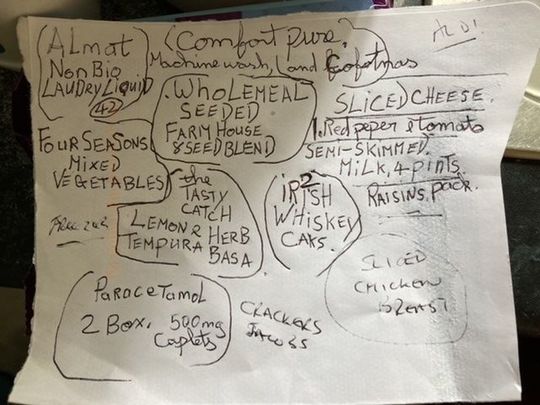 ALDI
ALmat
NonBio
LAUDRY LIQUID
42
Comfort pure.
Machine wash, Land
.WHOLEMEAL
SEEDED
FARM HOUSE
& SEED BLEND
SLICED CHEESE.
1. Red peper & tomato
SEMI-SKIMMED
MILK, 4 PINTS
RAISINS, PACK.
FOUR SEASONS
MIXED
VEGETABLES
the
TASTY
CATCH
LEMON & HERB
TEMPURA BASA
2
IRISH
WHISKEY
CAKS.
SLICED
CHICKEN
BREAST
PARACETAMOL
2 BOX. 500mg
Caplets
CRACKERS
JACOBS